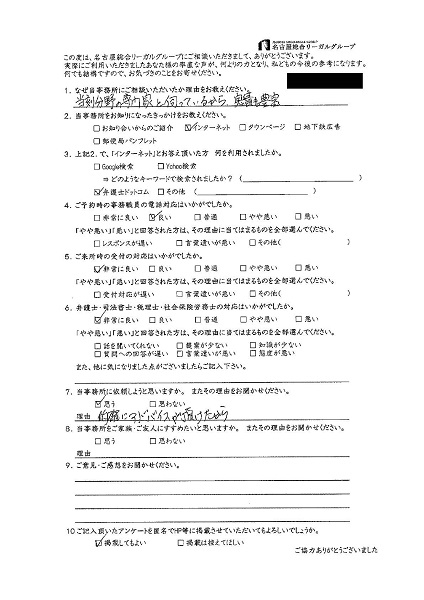 名古屋総合リーガルグループ
この度は、名古屋総合リーガルグループにご相談いただきまして、ありがとうございます。
実際にご利用いただきましたあなた様の率直な声が、何よりの力となり、私どもの今後の参考になります。
何でも結構ですので、お気づきのことをお寄せください。
1. なぜ当事務所にご相談いただいたか理由をお教えください。
専門家と伺っているから
2. 当事務所をお知りになったきっかけをお教えください。
□お知り合いからのご紹介 ☑インターネット □タウンページ □地下鉄広告
□郵便局パンフレット
3. 上記2. で、「インターネット」とお答え頂いた方 何を利用されましたか。
□Google検索 □Yahoo検索
⇒ どのようなキーワードで検索されましたか？ ( )
☑弁護士ドットコム □その他 ( )
4. ご予約時の事務職員の電話対応はいかがでしたか。
□非常に良い ☑良い □普通 □やや悪い □悪い
「やや悪い」「悪い」と回答された方は、その理由に当てはまるものを全部選んでください。
□レスポンスが遅い □言葉遣いが悪い □その他( )
5. ご来所時の受付の対応はいかがでしたか。
☑非常に良い □良い □普通 □やや悪い □悪い
「やや悪い」「悪い」と回答された方は、その理由に当てはまるものを全部選んでください。
□受付対応が遅い □言葉遣いが悪い □その他( )
6. 弁護士・司法書士・税理士・社会保険労務士の対応はいかがでしたか。
☑非常に良い □良い □普通 □やや悪い □悪い
「やや悪い」「悪い」と回答された方は、その理由に当てはまるものを全部選んでください。
□話を聞いてくれない □提案が少ない □知識が少ない
□質問への回答が遅い □言葉遣いが悪い □態度が悪い
また、他に気になりました点がございましたらご記入下さい。
7. 当事務所に依頼しようと思いますか。 またその理由をお聞かせください。
☑思う □思わない
理由 的確にアドバイスが頂けたから
8. 当事務所をご家族・ご友人にすすめたいと思いますか。 またその理由をお聞かせください。
□思う □思わない
理由
9. ご意見・ご感想をお聞かせください。
10 ご記入頂いたアンケートを匿名でHP等に掲載させていただいてもよろしいでしょうか。
☑掲載してもよい □掲載は控えてほしい
ご協力ありがとうございました